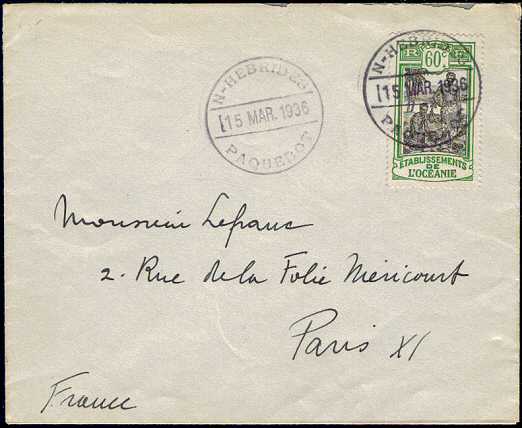 N-HEBRIDES
15 MAR. 1936
PAQUEBOT
N-HEBRIDES
15 MAR. 1936
PAQUEBOT
R F
60c
ÉTABLISSEMENTS
DE
L'OCÉANIE
Monsieur Lefranc
2. Rue de la Folie Méricourt
Paris XI
France